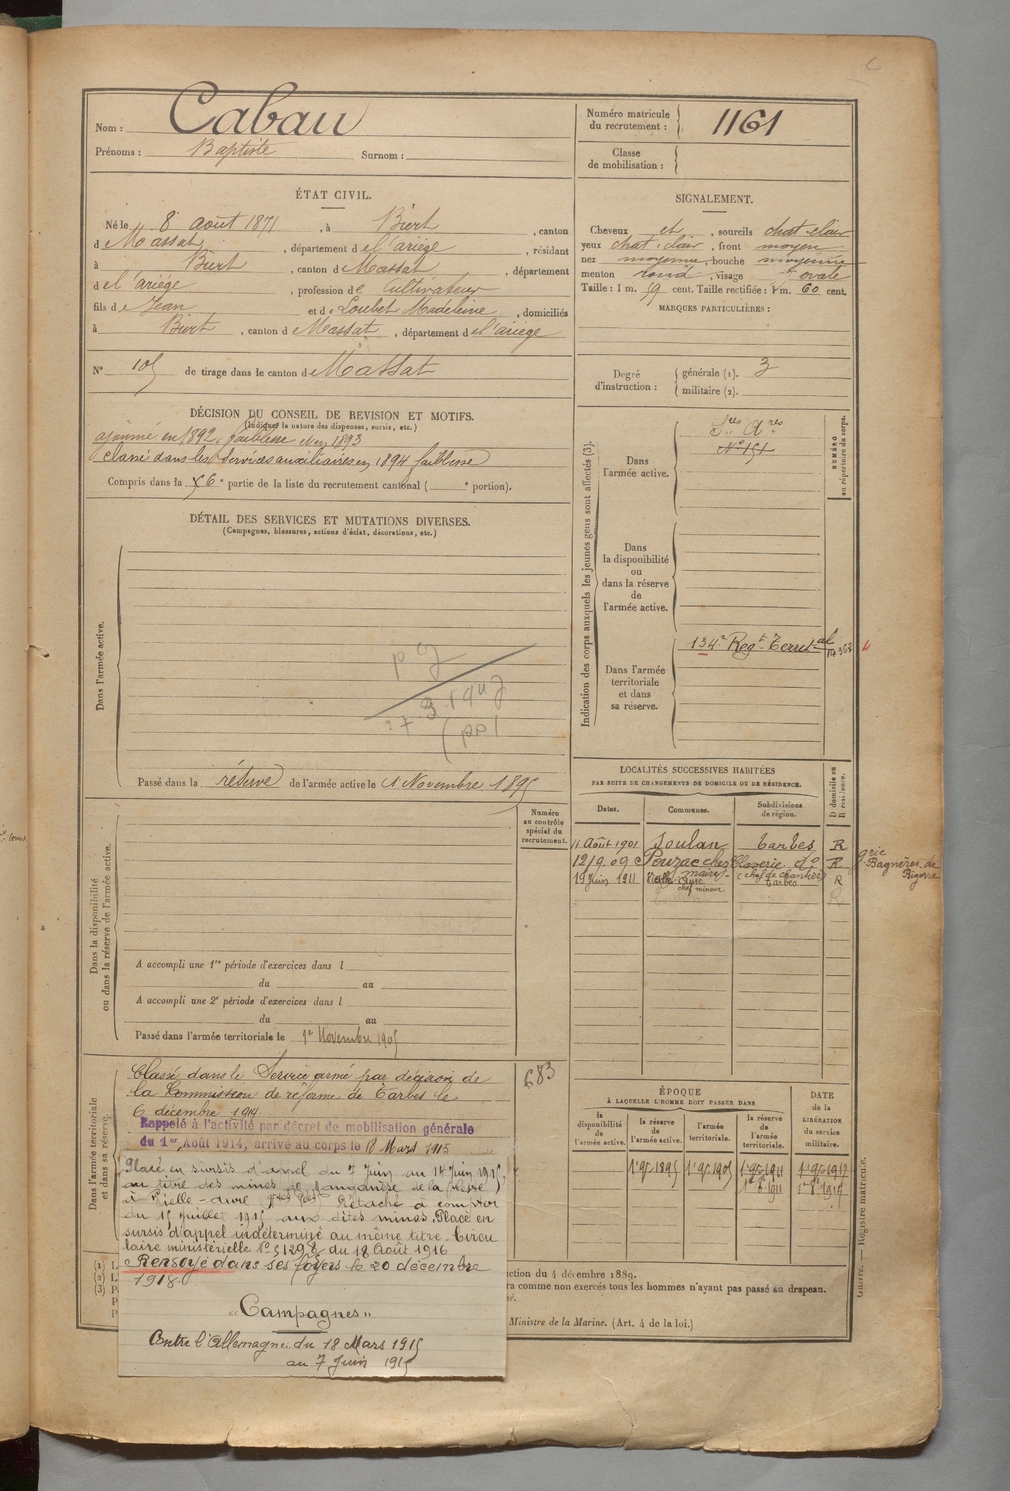 Nom : Cabau
Prénoms : Baptiste Surnom :
Numéro matricule du recrutement : 1161
Classe de mobilisation :
ÉTAT CIVIL.
Né le 8 août 1871, à Biert, canton
de Massat, département de l'ariège, résidant
à Biert, canton de Massat, département
de l'ariége, profession de cultivateur
fils de Jean et de Loubet Madeleine, domiciliés
à Biert, canton de Massat, département de l'ariege
N° 105 de tirage dans le canton de Massat
SIGNALEMENT.
Cheveux et, sourcils chat-clair
yeux chat-clair, front moyen
nez moyenne, bouche moyenne
menton rond, visage ovale
Taille : 1 m. 59 cent. Taille rectifiée : 1 m. 60 cent.
MARQUES PARTICULIÈRES :
Degré d'instruction :
générale (1). 3
militaire (2).
DÉCISION DU CONSEIL DE REVISION ET MOTIFS.
(Indiquer la nature des dispenses, sursis, etc.)
ajourné en 1892, faiblesse en 1893
classé dans les Services auxiliaires en 1894 faiblesse
Compris dans la 6e partie de la liste du recrutement cantonal ( e portion).
DÉTAIL DES SERVICES ET MUTATIONS DIVERSES.
(Campagnes, blessures, actions d'éclat, décorations, etc.)
Dans l'armée active.
Passé dans la réserve de l'armée active le 1 Novembre 1895
Indication des corps auxquels les jeunes gens sont affectés (3).
NUMÉRO
au répertoire du corps.
Dans l'armée active.
Sces Ares
N° 151
Dans
la disponibilité
ou
dans la réserve
de
l'armée active.
Dans l'armée
territoriale
et dans
sa réserve.
134e Regt Territal
LOCALITÉS SUCCESSIVES HABITÉES
PAR SUITE DE CHANGEMENTS DE DOMICILE OU DE RÉSIDENCE.
D domicile ou
R résidence.
Dates. Communes. Subdivisions de région.
11 Août 1901 Soulan Tarbes R
12/9.09 Pouzac chez Claverie do R
Bagnères de Bigorre
19 Juin 1911 Vielle-Aure chef mineur Tarbes R
Numéro
au contrôle
spécial du
recrutement.
683
Dans la disponibilité
ou dans la réserve de l'armée active.
A accompli une 1re période d'exercices dans l
du au
A accompli une 2e période d'exercices dans l
du au
Passé dans l'armée territoriale le 1er Novembre 1905
Dans l'armée territoriale
et dans sa réserve.
Classé dans le Service armé par décision de
la Commission de réforme de Tarbes le
6 décembre 1914
Rappelé à l'activité par décret de mobilisation générale
du 1er Août 1914, arrivé au corps le 18 Mars 1915
Placé en sursis d'appel du 7 Juin au 14 Juin 1915
au titre des mines de manganèse de la
à Vielle-Aure Détaché à compter
du 15 Juillet 1915 aux dites mines. Placé en
sursis d'appel indéterminé au même titre. Circu
laire ministérielle N° 51298 du 18 Août 1916
Renvoyé dans ses foyers le 20 décembre
1918.
"Campagnes"
Contre l'Allemagne du 18 Mars 1915
au 7 Juin 1915
ÉPOQUE
À LAQUELLE L'HOMME DOIT PASSER DANS
la disponibilité de l'armée active.
la réserve de l'armée active.
l'armée territoriale.
la réserve de l'armée territoriale.
DATE
de la
LIBÉRATION
du service
militaire.
1er 9bre 1895 1er 9bre 1905 1er 9bre 1911 1er 9bre 1917
(1)
(2)
(3)
ction du 4 décembre 1889.
ra comme non exercés tous les hommes n'ayant pas passé au drapeau.
Ministre de la Marine. (Art. 4 de la loi.)
Guerre. — Registre matricule.